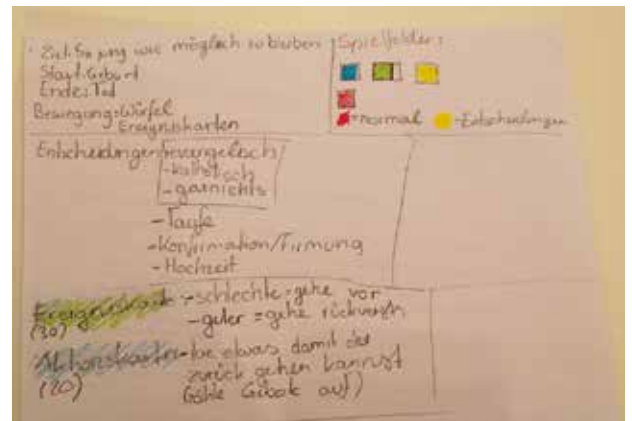 Ziel: So jung wie möglich zu bleiben
Start: Geburt
Ende: Tod
Bewegung: Würfel
Ereigniskarten
Spielfelder:
= normal
- Entscheidungen
Entscheidungen: - evangelisch
- katholisch
- garnichts
- Taufe
- Konfirmation/Firmung
- Hochzeit
Ereigniskarte: - schlechte = gehe vor
(30)
- guter = gehe rückwersh
Aktionskarten - tue etwas damit du
(20)
zurück gehen kannst
Gebote auf)